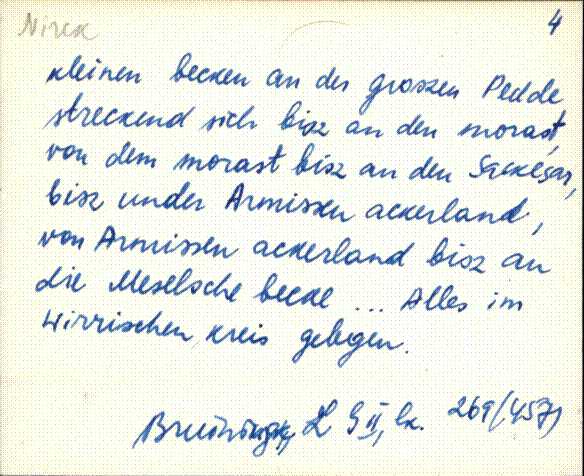 Nirck
4
kleinen becken an der groszen Pedde
streckend sich bisz an den morast,
von dem morast bisz an den
bisz under Armissen ackerland,
von Armissen ackerland bisz an
die Meselsche becke ... Alles im
Wirrischen kreis gelegen.
L G II, lk. 269 (457)